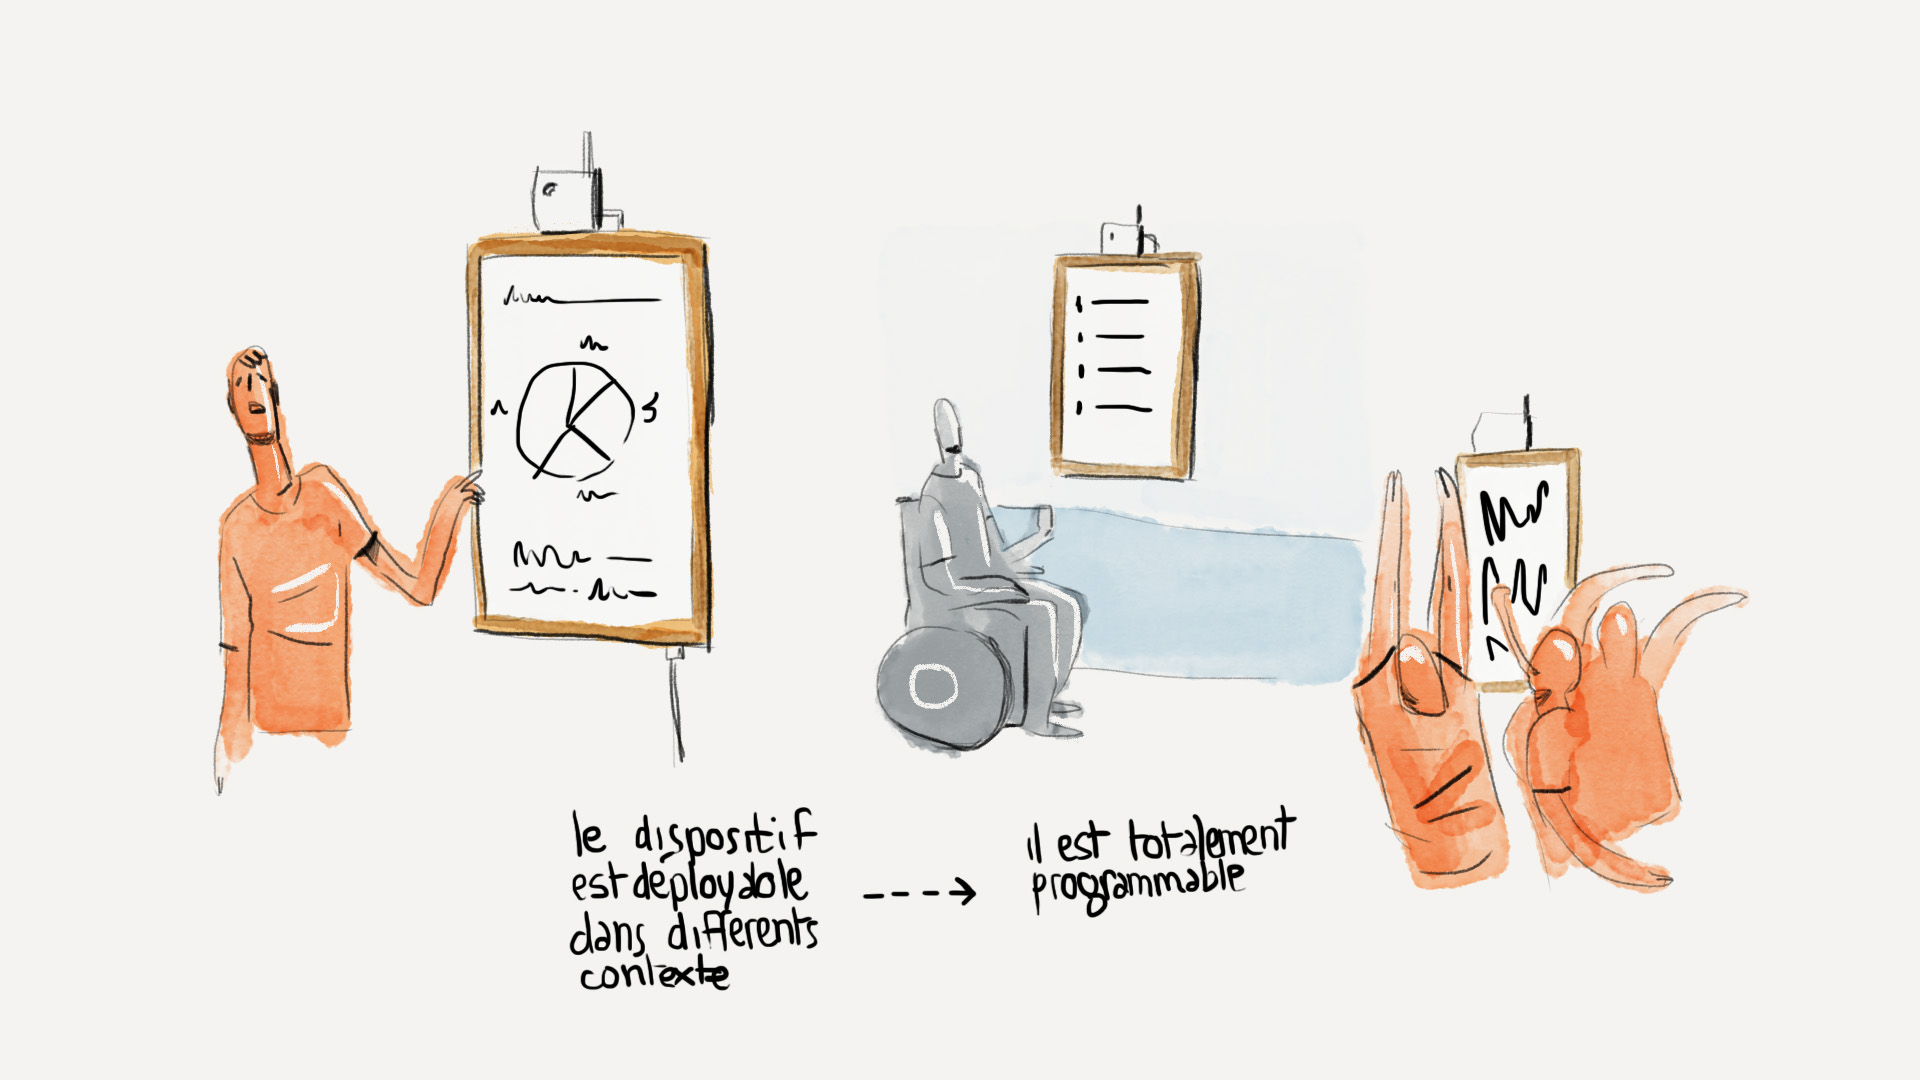 le dispositif
est déployable
dans différents
contexte
il est totalement
programmable